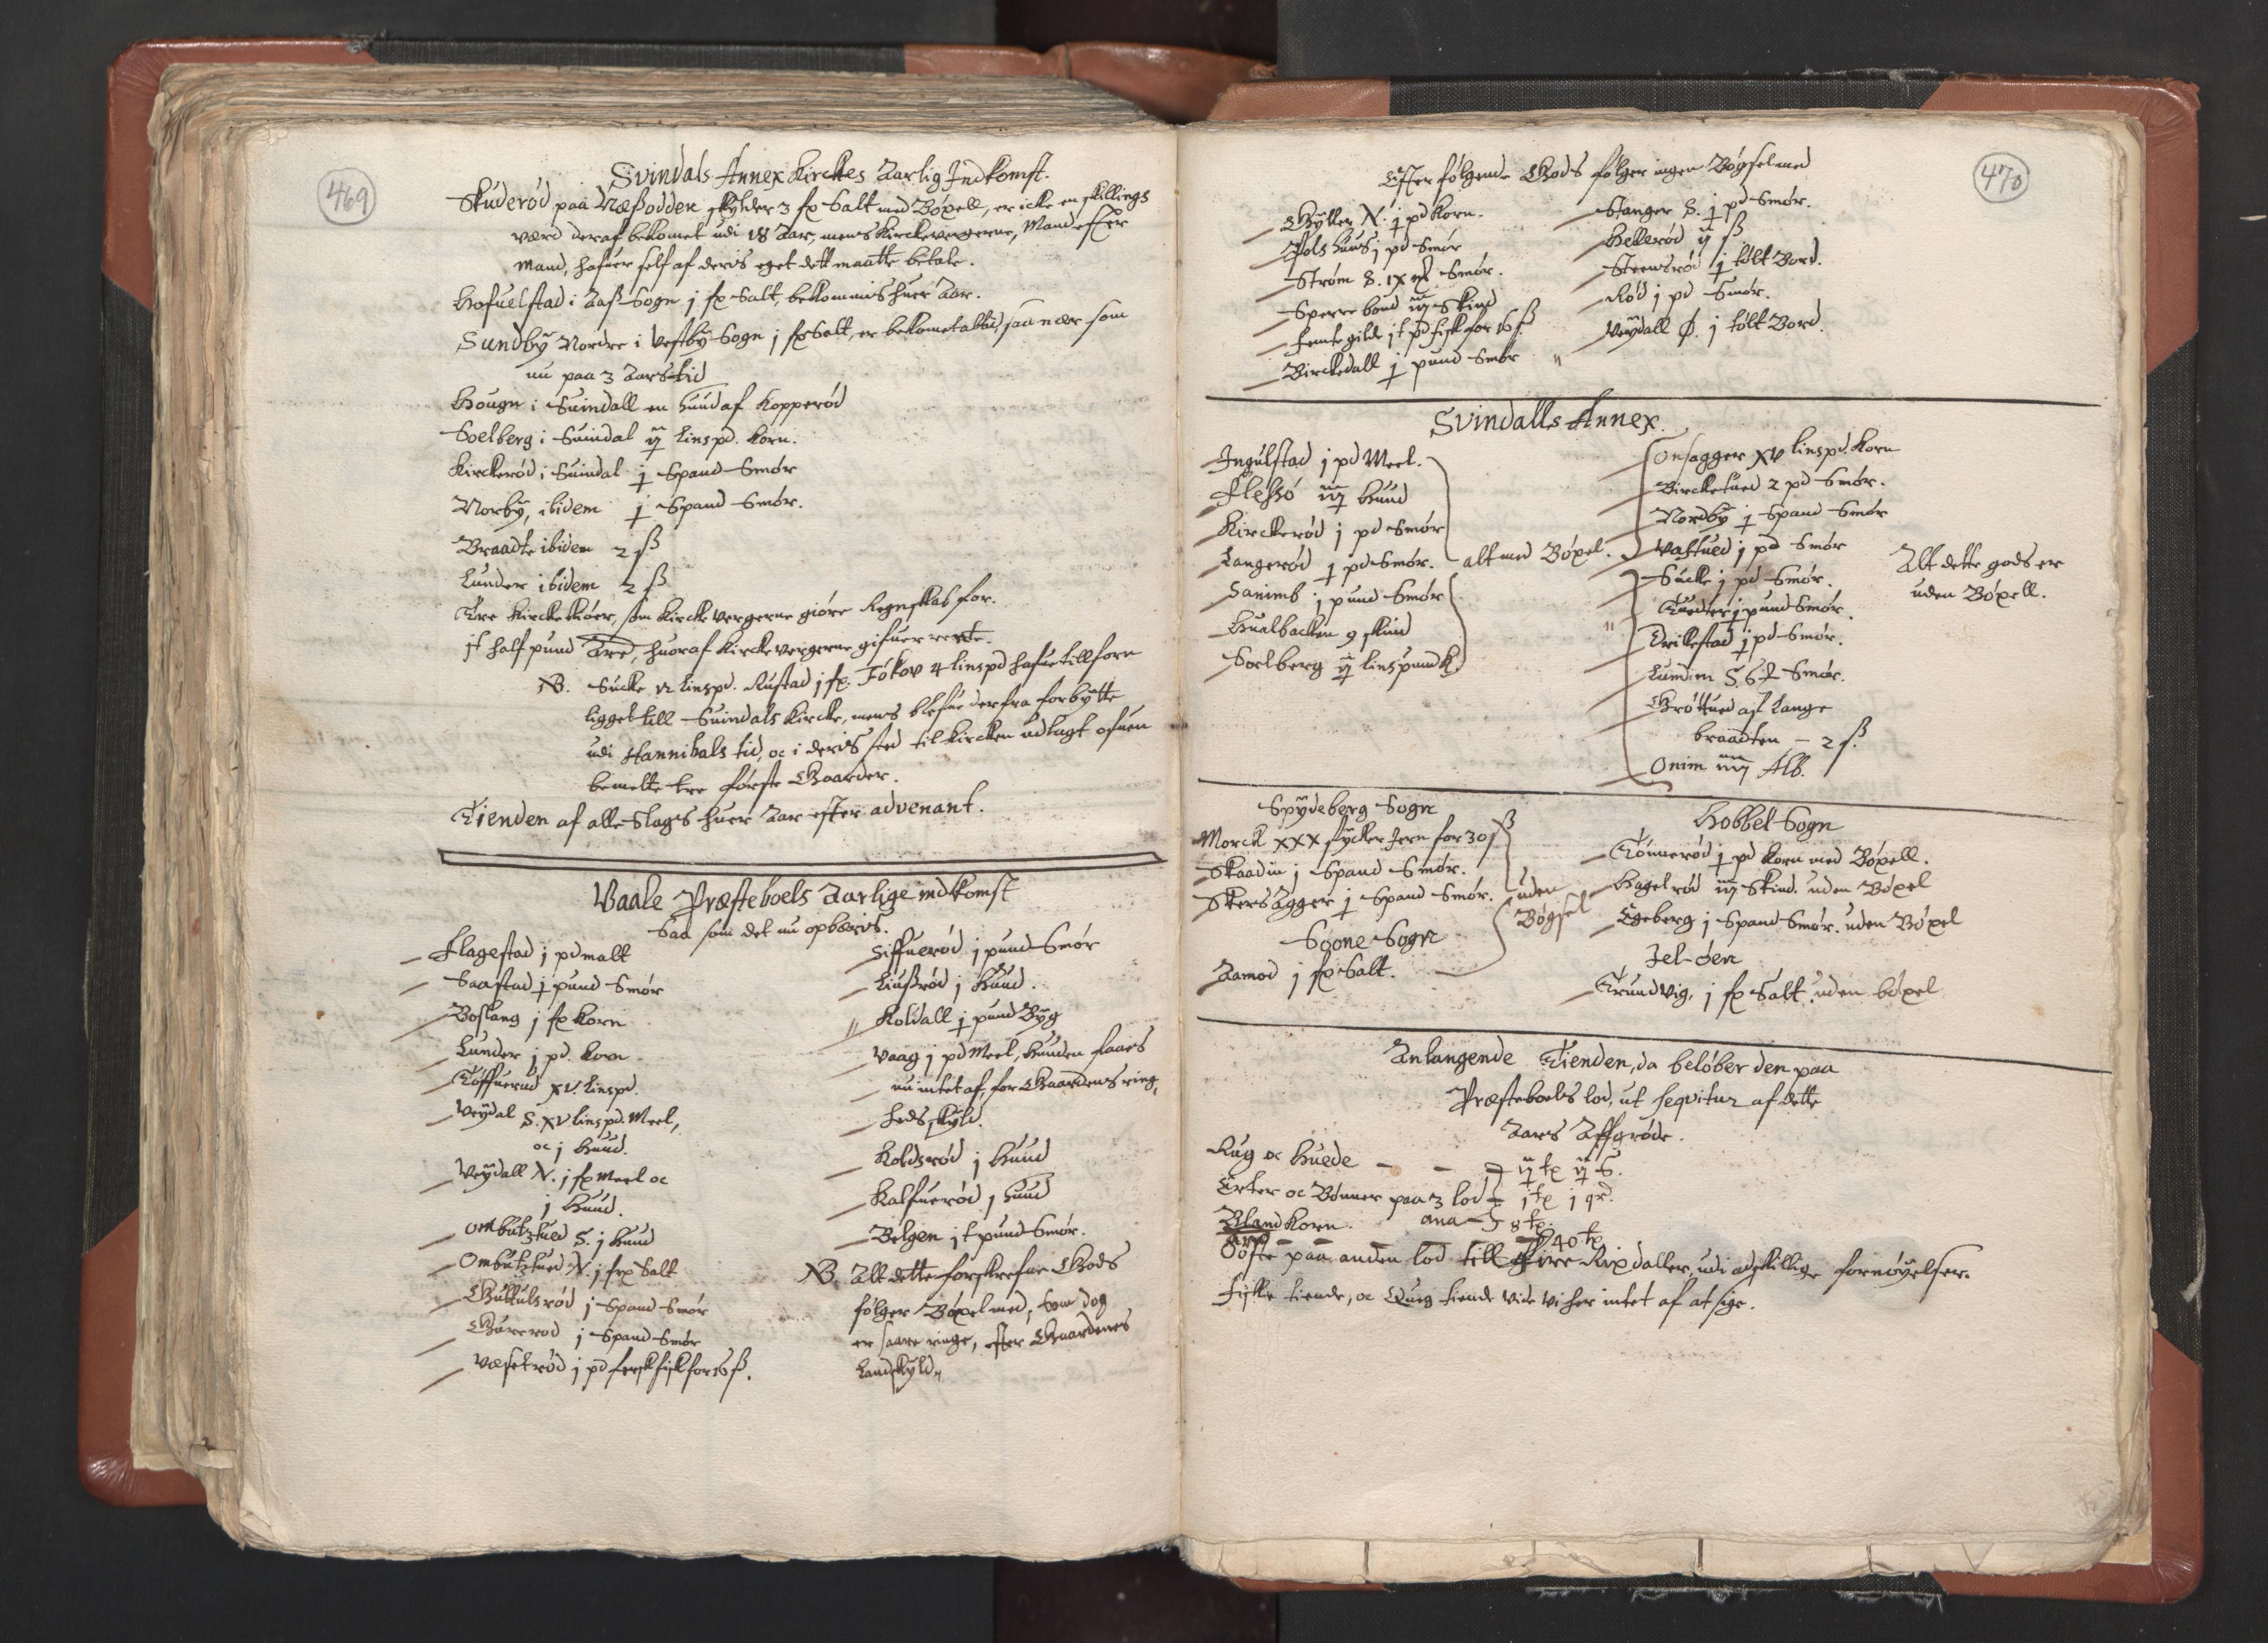 469
Svindals Annex Kirckes Aarlig Indkomst.
Skuderød paa Næssodden skylder 3 fx Salt med Böxell, er icke en skillings
værd deraf bekomet udi 18 Aar, mens Kirckevergerne, Mand efter
Mand, hafuer self af deris eget dett maatte betale.
Hofuelstad i Aass Sogn j fx Salt, bekommis huer Aar.
Sundby Nordre i Vestby Sogn j fx Salt, er bekomet altid, saa nær som
nu paa 3 Aars tid
Hougn i Suindall en Huud af Kopperød
Soelberg i Suindal ij Lispd. Korn.
Kirckerød i Suindal j Spand Smör
Norby, ibidem j Spand Smör.
Braadte ibidem 2 ß
Lunder ibidem 2 ß
Tre Kirckekiöer, som Kirckevergerne giöre Regnskab for.
jt half pund Træ, huoraf Kirckevergerne gifuer rente.
NB. Sucke 12 Lispd. Rustad j fx. Fökov 4 Lispd hafue tillforn
ligget till Suindals Kircke, mens blefue derfra forbytte
udi Hannibals tid, oc i deris sted til Kircken udlagt ofuen
bemelte tre förste Gaarder.
Tienden af alle Slags huer Aar efter advenant.
Vaale Præsteboels Aarlige indkomst
Saa som det nu opbæris.
Flagestad j pd malt
Saastad j pund Smör
Boslang j fx Korn
Lunder j pd. Korn
Töffuerud XV. Linspd.
Veydal S. XV linspd. Meel,
oc j Huud.
Veydall N. j fx Meel oc
j Huud.
Ombutztued S. j Huud
Ombutztued N. j frx Salt
Guttulsrød j Spand Smör
Gurerod j Spand Smör
Væsetrød j pd fersk fisk for 16 ß.
Siffuerød j pund Smör
Liusrød j Huud.
Koldall j pund Byg
Vaag j pd Meel, Huuden faaes
nu intet af, for Gaardens ring,
heds skyld.
Koldsrød j Huud
Kalfuerød j Huud
Belgen jt pund Smör.
NB. Alt dette forskrefne Gods
fölger Böxel med, som dog
er saare ringe, efter Gaardenes
Landskyld.
470
Efter fölgende Gods fölger ingen Bögsel med
Gylter N. j pd Korn.
Pols Huus j pd Smör
Ström S. IX ℔ Smör.
Sperrebond iij Skind
Femtegilde jt pd fisk for 16 ß
Birckedall j pund Smör
Stanger S. j pd Smör.
Hellerød ij ß
Steensrød j tolt Bord.
Rød j pd Smör.
Veydall Ø. j tolt Bord.
Svindalls Annex.
Ingulstad j pd Meel.
Flessö iij Huud
Kirckerød j pd Smör
Langerød j pd Smör.
Sanimb j pund Smör
Hualbacken 9 skind
Soelberg ij linspund K.
alt med Böxel.
Onsagger XV linspd. Korn
Bircketued 2 pd Smör.
Nordby j Spand Smör
Vastued j pd Smör
Sucke j pd Smör.
Tuedter j pund Smör.
Trillestad j pd Smör.
Lundim S. 6 ℔ Smör.
Gröttued af Lange
braadten – 2 ß.
Onim iiij Alb.
Alt dette gods er
uden Böxell.
Spydeberg Sogn
Morck XXX stycker Jern for 30 ß
Skaadin j Spand Smör.
Skersagger j Spand Smör.
Soone Sogn
Aamod j fx Salt.
uden
Bögsel
Hobbel Sogn
Tönnerød j pd Korn med Böxell.
Hagelrød iij Skind. uden Böxel
Egeberg j Spand Smör. uden Böxel
Jel-öen
Trundvig, j fx Salt uden böxel
Anlangende Tienden, da belöber den paa
Præsteboels lod, ut sequitur af dette
Aars Affgröde.
Rug oc Huede – – ij tx ij S.
Erter oc Bönner paa 3 lod j tx j qr.
Blandkorn. ana – 8 tx.
– 40 tx
Ooste paa anden lod till fire Rixdaller, udi adskillige fornöyelser.
Fiske tiende, oc Queg tiende vide vi her intet af at sige.